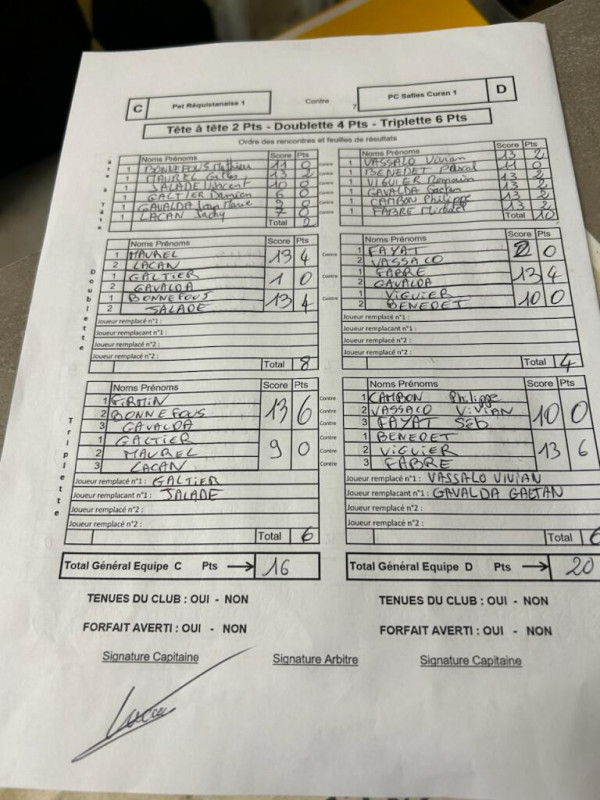 C Pet Réquistanaise 1 Contre PC Salles Curan 1 D
Tête à tête 2 Pts - Doublette 4 Pts - Triplette 6 Pts
Ordre des rencontres et feuilles de résultats
Noms Prénoms Score Pts Noms Prénoms Score Pts
1 BONNEFOUS Mathieu 11 0 Contre 1 VASSALO Vivian 13 2
1 MAUREL Gilles 13 2 Contre 1 BENEDET Pascal 11 0
1 SALADE Vincent 10 0 Contre 1 VIGUIER Romain 13 2
1 GALTIER Damien 0 Contre 1 GAVALDA Gaetan 13 2
1 GAVALDA Jean Marie 0 Contre 1 CAMBON Philippe 13 2
1 LACAN Jacky 7 0 Contre 1 FABRE Mickael 13 2
Total 2 Total 10
Tête à Tête
Noms Prénoms Score Pts Noms Prénoms Score Pts
1 MAUREL 13 4 Contre 1 FAYAT 2 0
2 LACAN 2 VASSALO
1 GALTIER 1 0 Contre 1 FABRE 13 4
2 GAVALDA 2 GAVALDA
1 BONNEFOUS 13 4 Contre 1 VIGUIER 10 0
2 SALADE 2 BENEDET
Doublette
Joueur remplacé n°1 : Joueur remplacé n°1 :
Joueur remplacant n°1 : Joueur remplacant n°1 :
Joueur remplacé n°2 : Joueur remplacé n°2 :
Joueur remplacé n°2 : Joueur remplacé n°2 :
Total 8 Total 4
Noms Prénoms Score Pts Noms Prénoms Score Pts
1 FIRMIN 13 6 Contre 1 CAMBON Philippe 10 0
2 BONNEFOUS Contre 2 VASSALO VIVIAN
3 GAVALDA Contre 3 FAYAT Séb
1 GALTIER 9 0 Contre 1 BENEDET 13 6
2 MAUREL Contre 2 VIGUIER
3 LACAN Contre 3 FABRE
Triplette
Joueur remplacé n°1 : GALTIER Joueur remplacé n°1 : VASSALO VIVIAN
Joueur remplacant n°1 : SALADE Joueur remplacant n°1 : GAVALDA GAETAN
Joueur remplacé n°2 : Joueur remplacé n°2 :
Joueur remplacé n°2 : Joueur remplacé n°2 :
Total 6 Total 6
Total Général Equipe C Pts 16 Total Général Equipe D Pts 20
TENUES DU CLUB : OUI - NON TENUES DU CLUB : OUI - NON
FORFAIT AVERTI : OUI - NON FORFAIT AVERTI : OUI - NON
Signature Capitaine Signature Arbitre Signature Capitaine